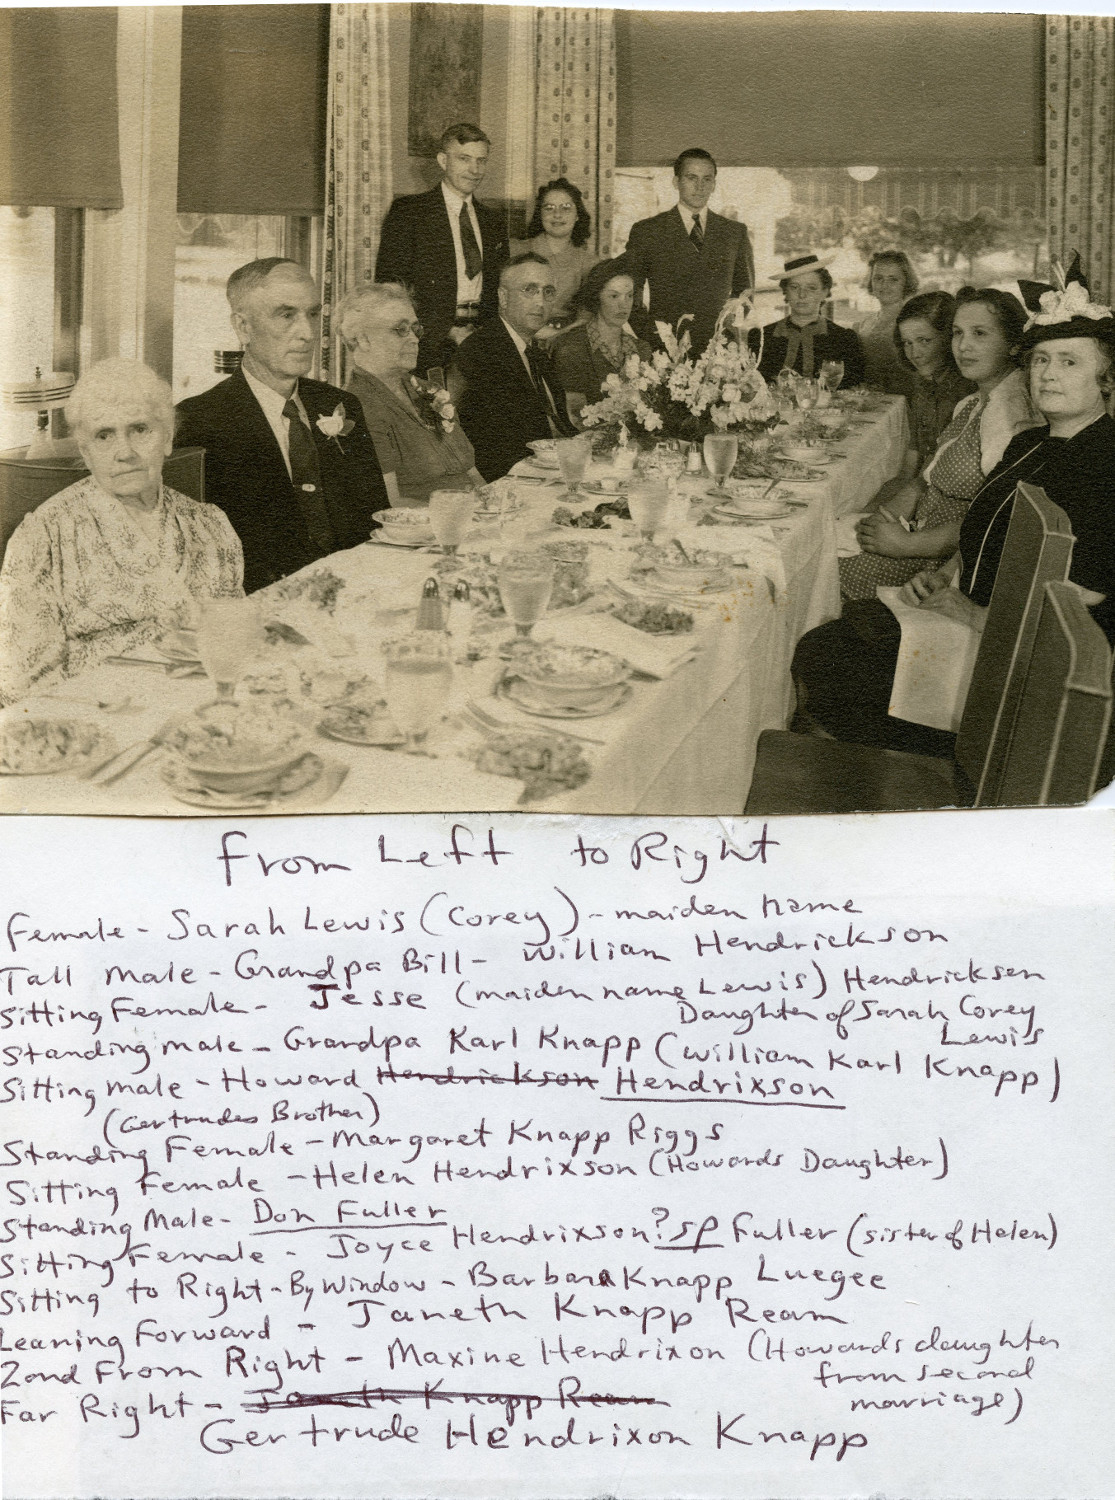 From Left to Right
Female - Sarah Lewis (Corey) - maiden name
Tall Male - Grandpa Bill - William Hendrickson
Sitting Female - Jesse (maiden name Lewis) Hendricksen
Daughter of Sarah Corey
Lewis
Standing male - Grandpa Karl Knapp (William Karl Knapp)
Sitting male - Howard Hendrickson Hendrixson
(Gertrudes Brother)
Standing Female - Margaret Knapp Riggs
Sitting Female - Helen Hendrixson (Howards Daughter)
Standing Male - Don Fuller
Sitting Female - Joyce Hendrixson? sp Fuller (sister of Helen)
Sitting to Right - By Window - Barbara Knapp Luegee
Leaning Forward - Janeth Knapp Ream
2ond From Right - Maxine Hendrixon (Howards daughter
from second
marriage)
Far Right - Janeth Knapp Ream
Gertrude Hendrixon Knapp